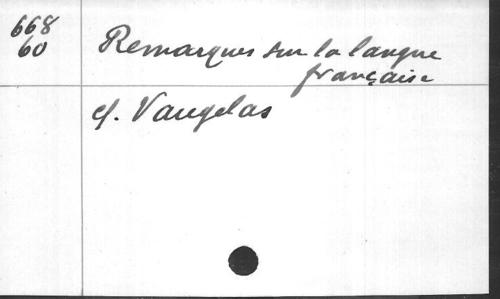 668
60
Remarques sur la langue
française
cf. Vaugelas